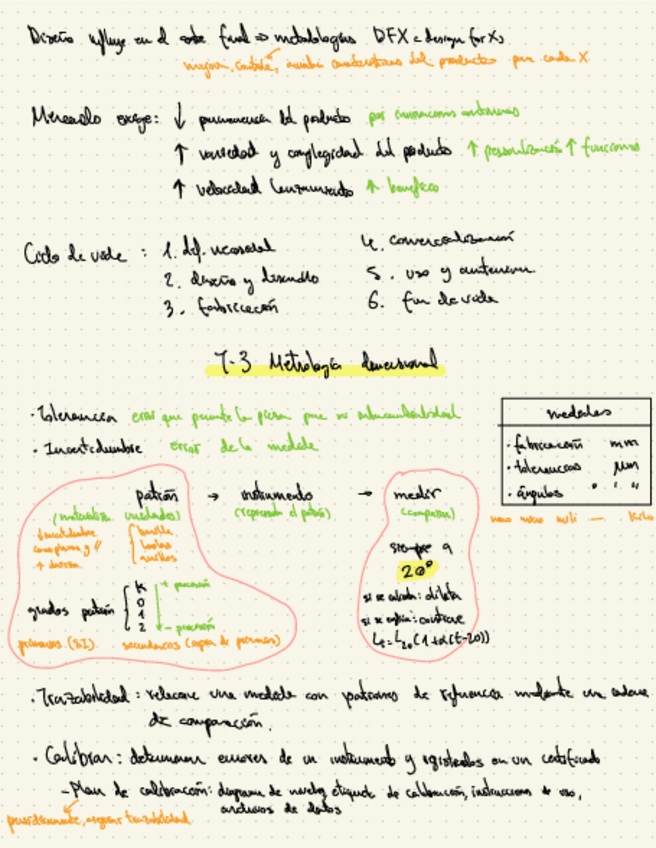 Diseño influye en el coste final ⇒ metodologías DFX = design for X
mejorar, controlar, características del producto para cada X
Mercado exige: ↓ permanencia del producto por innovaciones
↑ variedad y complejidad del producto ↑ personalización ↑ funciones
↑ velocidad lanzamiento ↑ beneficio
Ciclo de vida : 1. def. necesidad
2. diseño y desarrollo
3. fabricación
4. comercialización
5. uso y
6. fin de vida
T-3 Metrología dimensional
· Tolerancia error que permite la pieza para su intercambiabilidad
· Incertidumbre error de la medida
medidas
· fabricación mm
· tolerancias μm
· ángulos ° ' "
nano micro mili — Kilo
patrón → instrumento → medir
(materializa unidades) (representa el patrón) (comparar)
↓ incertidumbre
caras planas y //
+ dureza
bolas
anillos
grados patrón K + precisión
0
1
2 - precisión
primarios (SI) secundarios (copia de primarios)
siempre a
20°
si se calienta: dilata
si se enfría: contrae
Lt = L20 (1+α(t-20))
· Trazabilidad : relacionar una medida con patrones de referencia mediante una cadena
de comparación.
· Calibrar : determinar errores de un instrumento y registrarlos en un certificado
- Plan de calibración: diagrama de niveles, etiqueta de calibración, instrucciones de uso,
archivos de datos
periódicamente, asegurar trazabilidad